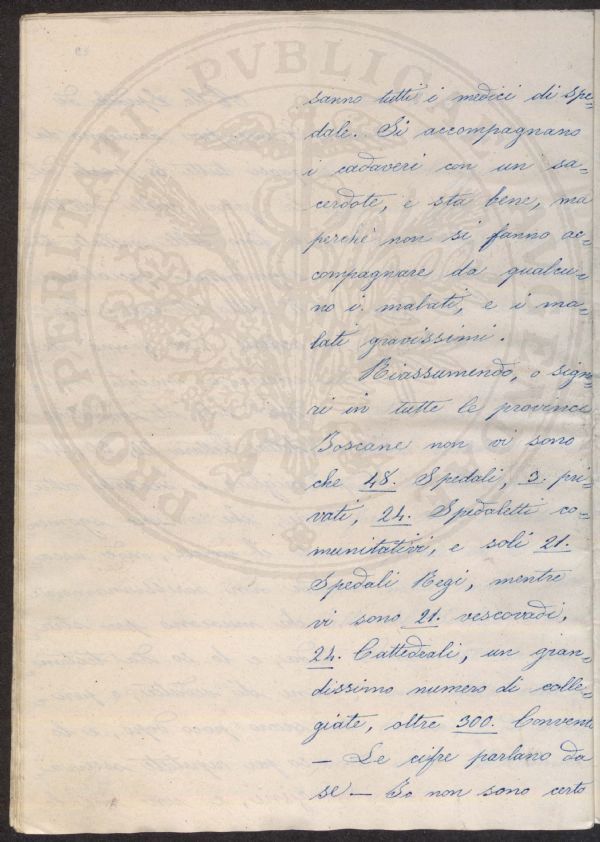 sanno tutti i medici di spe=
dale. Si accompagnano
i cadaveri con un sa=
cerdote, e sta bene, ma
perché non si fanno ac=
compagnare da qualcu=
no i malati, e i ma=
lati gravissimi.
Riassumendo, o signo
ri in tutte le provinci
Toscane non vi sono
che 48. Spedali, 3. pri=
vati, 24. Spedaletti co=
munitativi, e soli 21.
Spedali Regi, mentre
vi sono 21. vescovadi,
24. Cattedrali, un gran=
dissimo numero di colle=
giate, oltre 300. Conventi
— Le cifre parlano da
se — Io non sono certo
PROSPERITATI PVBLICAE